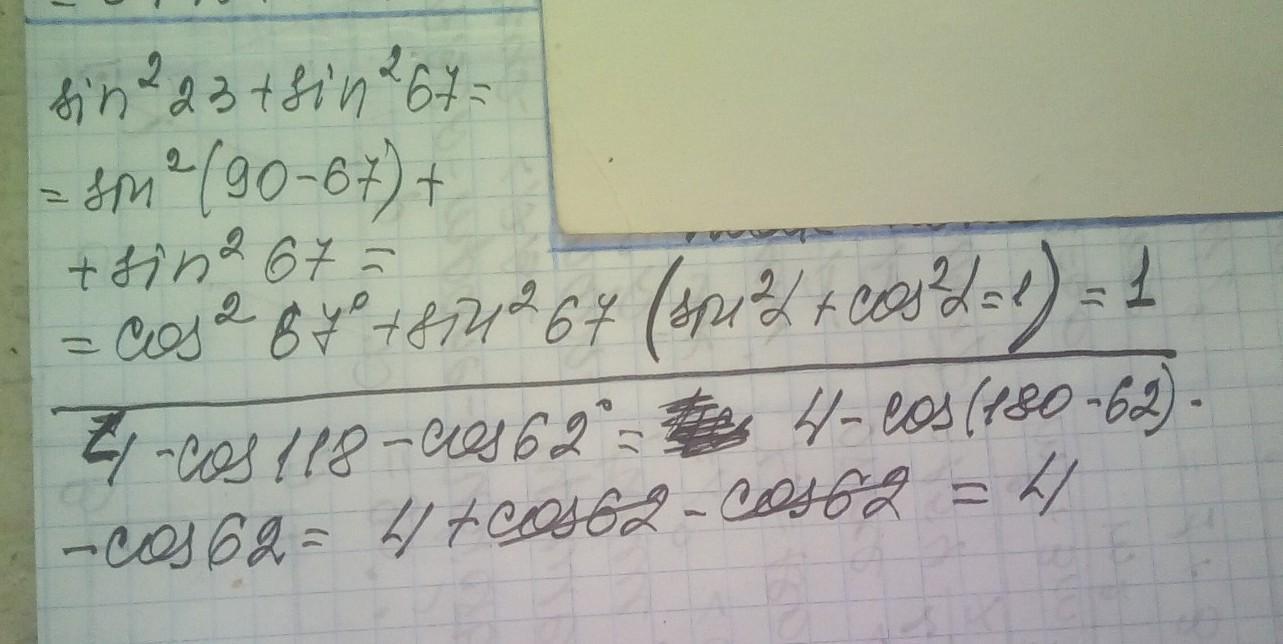 sin² 23 + sin² 67 =
= sin² (90 - 67) +
+ sin² 67 =
= cos² 67° + sin² 67 (sin²α + cos²α = 1) = 1
4 - cos 118 - cos 62° = 4 - cos(180 - 62) -
- cos 62 = 4 + cos 62 - cos 62 = 4